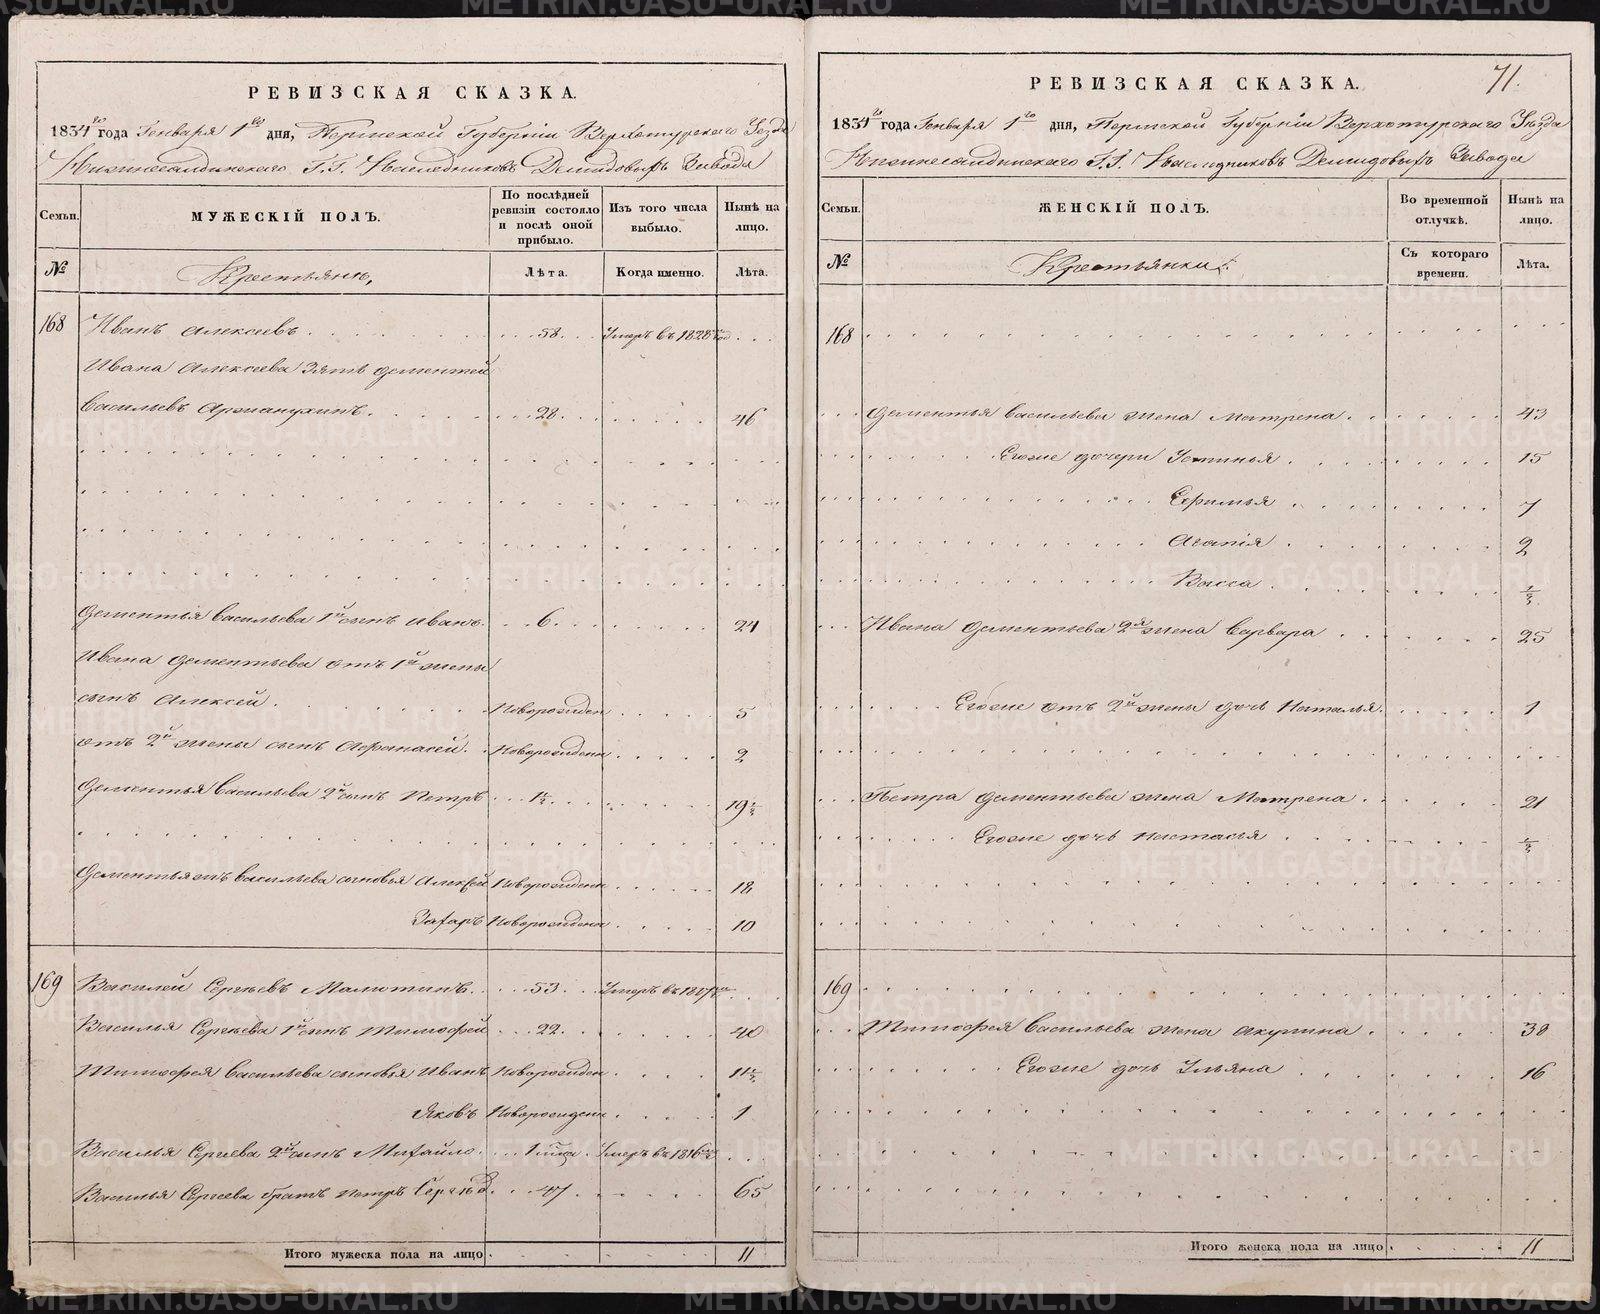 РЕВИЗСКАЯ СКАЗКА.
1834го года Генваря 1го дня, Пермской Губернiи Верхотурского Уѣзда
Нижнесалдинского Г.Г. Наслѣдниковъ Демидовыхъ Завода
Семьи.
МУЖЕСКIЙ ПОЛЪ.
По послѣдней ревизiи состояло и послѣ оной прибыло.
Изъ того числа выбыло.
Нынѣ на лицо.
№
Крестьянъ,
Лѣта.
Когда именно.
Лѣта.
168 Иванъ Алексеевъ 58 Умеръ въ 1828м год
Ивана Алексеева Зять Дементей
Васильевъ 28 46
Дементья Васильева 1й сынъ Иванъ 6 24
Ивана Дементьева отъ 1й жены
сынъ Алексей Новорожден 5
отъ 2й жены сынъ Афонасей Новорожденн 2
Дементья Васильева 2й сынъ Петръ 1½ 19½
Дементья Васильева сыновья Алексей Новорожденн 18
Захаръ Новорожденн 10
169 Василей Сергѣевъ Малютинъ 53 Умеръ въ
Василья Сергѣева 1й сынъ Тимофей 22 40
Тимофея Васильева сыновья Иванъ Новорожден 11½
Яковъ Новорожденн 1
Василья Сергѣева 2й сынъ Михайло Умеръ въ 1816м
Василья Сергеева братъ Петръ Сергѣевъ 47 65
Итого мужеска пола на лицо 11
71.
РЕВИЗСКАЯ СКАЗКА.
1834го года Генваря 1го дня, Пермской Губернiи Верхотурского Уѣзда
Нижнесалдинского Г.Г. Наслѣдниковъ Демидовыхъ Завода
Семьи.
ЖЕНСКIЙ ПОЛЪ.
Во временной отлучкѣ.
Нынѣ на лицо.
№
Крестьянки:
Съ котораго времени.
Лѣта.
168
Дементья Васильева жена Матрена 43
Егоже дочери Устинья 15
Ефимья 7
Агапiя 2
Васса ½
Ивана Дементьева 2я жена Варвара 25
Егоже отъ 2й жены дочь Наталья 1
Петра Дементьева жена Матрена 21
Егоже дочь Настасья ½
169
Тимофея Васильева жена Акулина 38
Егоже дочь Ульяна 16
Итого женска пола на лицо 11
METRIKI.GASO-URAL.RU